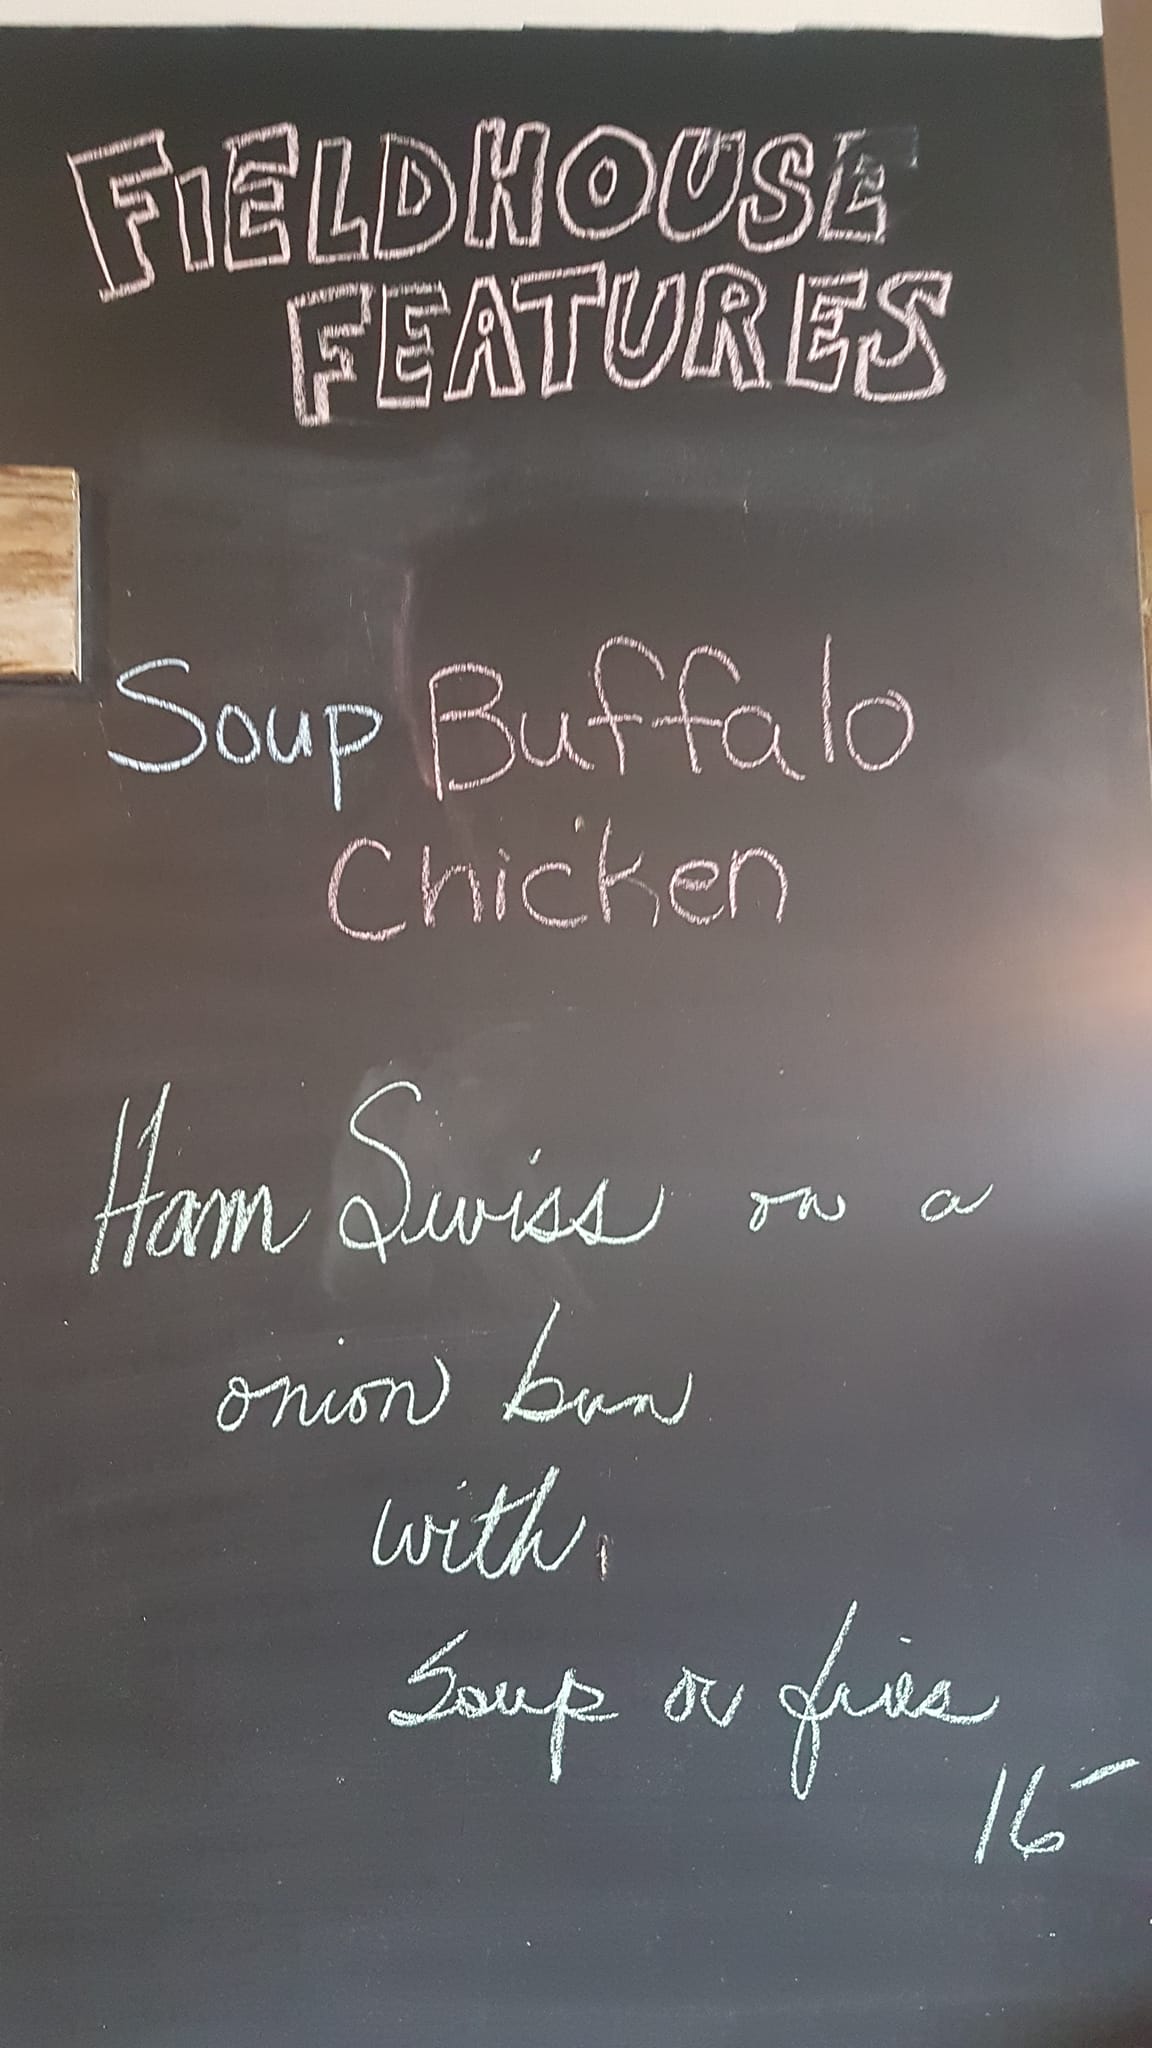 FIELDHOUSE
FEATURES
Soup Buffalo
Chicken
Ham Swiss on a
onion bun
with
Soup or fries
16-